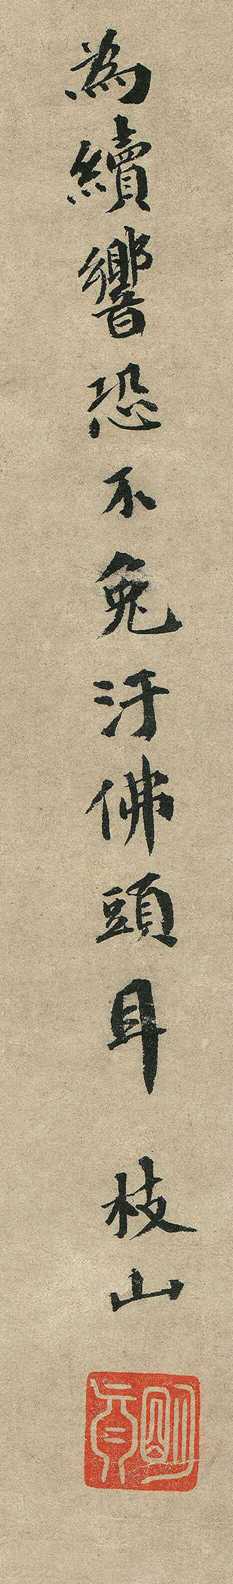 為續響恐不免汙佛頭耳 枝山
明貞